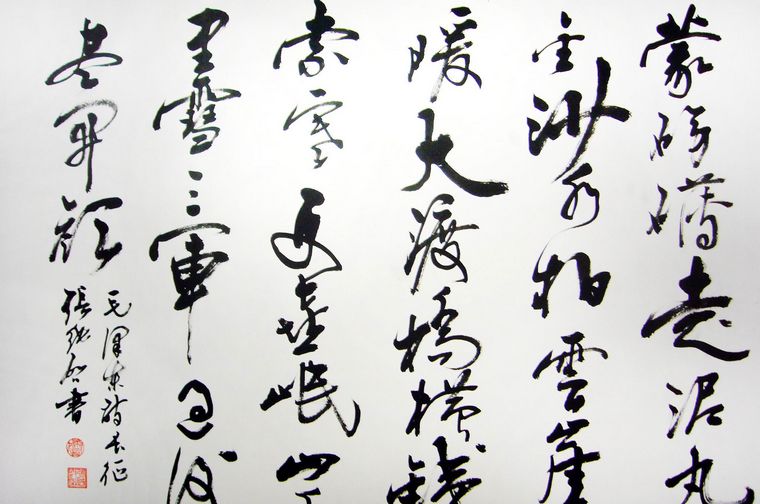 蒙磅礴走泥丸
金沙水拍雲崖
暖大渡橋橫鐵
索寒更喜岷山千
里雪三軍過後
盡開顏
毛澤東詩長征
張書